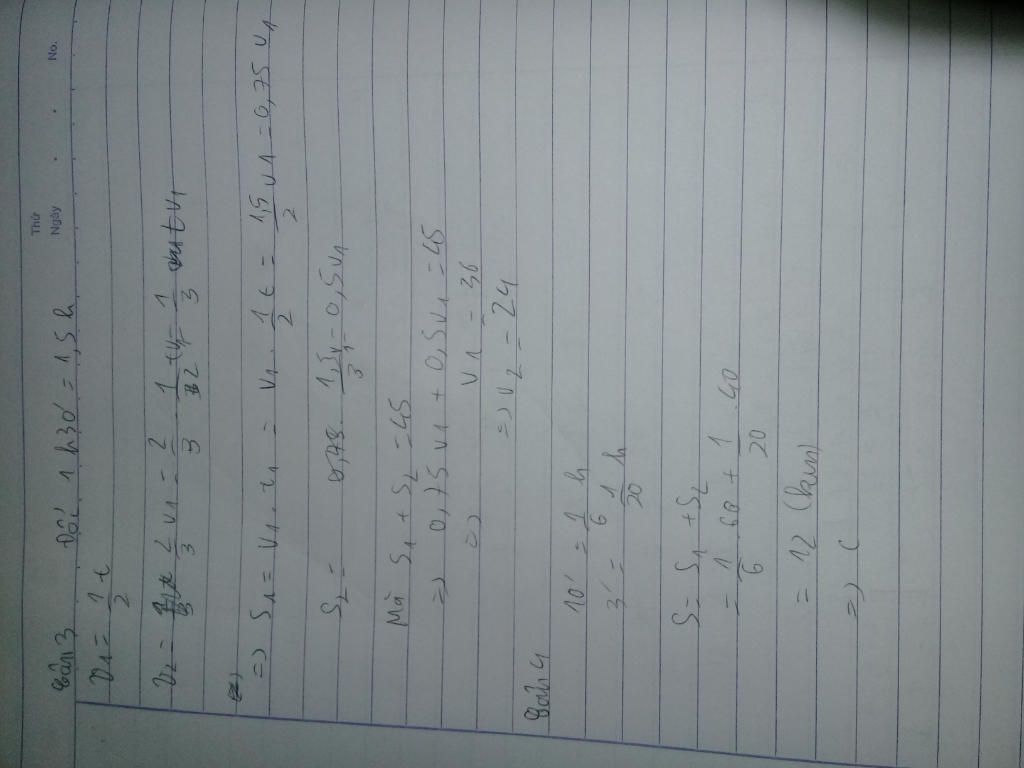 Thứ
Ngày . . No.
Bài 3 Đổi 1h30' = 1,5h
v1 = 1/2 t
v2 = 2/3 v1 = 2/3 . 1/2 t = 1/3 t v1
=> S1 = v1 . t1 = v1 . 1/2 t = 1,5/2 v1 = 0,75 v1
S2 = 1,5/3 v1 = 0,5v1
Mà S1 + S2 = 45
=> 0,75 v1 + 0,5v1 = 45
=> v1 = 36
=> v2 = 24
Bài 4
10' = 1/6 h
3' = 1/20 h
S = S1 + S2
= 1/6 . 60 + 1/20 . 40
= 12 (km)
=> C